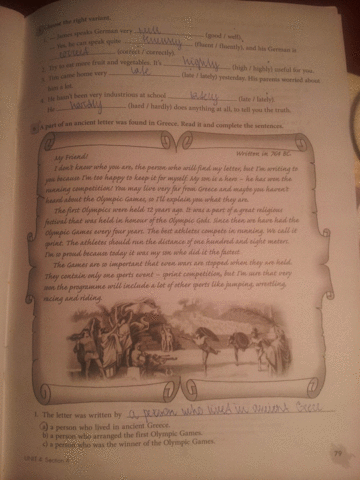 the right variant.
1. – Peter speaks German very well (good / well).
– Yes, he can speak quite fluently (fluent / fluently), and his German is
correct (correct / correctly).
2. Try to eat more fruit and vegetables. It's highly (high / highly) useful for you.
3. Tom came home very late (late / lately) yesterday. His parents worried about
him a lot.
4. He hasn't been very industrious at school lately (late / lately).
He hardly (hard / hardly) does anything at all, to tell you the truth.
A part of an ancient letter was found in Greece. Read it and complete the sentences.
Written in 764 BC.
My Friend!
I don't know who you are, the person who will find my letter, but I'm writing to
you because I'm too happy to keep it for myself. My son is a hero – he has won the
running competition! You may live very far from Greece and maybe you haven't
heard about the Olympic Games, so I'll explain you what they are.
The first Olympics were held 12 years ago. It was a part of a great religious
festival that was held in honour of the Olympic Gods. Since then we have had the
Olympic Games every four years. The best athletes compete in running. We call it
sprint. The athletes should run the distance of one hundred and eighty meters.
I'm so proud because today it was my son who did it the fastest.
The Games are so important that even wars are stopped when they are held.
They contain only one sports event – sprint competition, but I'm sure that very
soon the programme will include a lot of other sports like jumping, wrestling,
racing and riding.
1. The letter was written by a person who lived in ancient
a) a person who lived in ancient Greece.
b) a person who arranged the first Olympic Games.
c) a person who was the winner of the Olympic Games.
Section 3